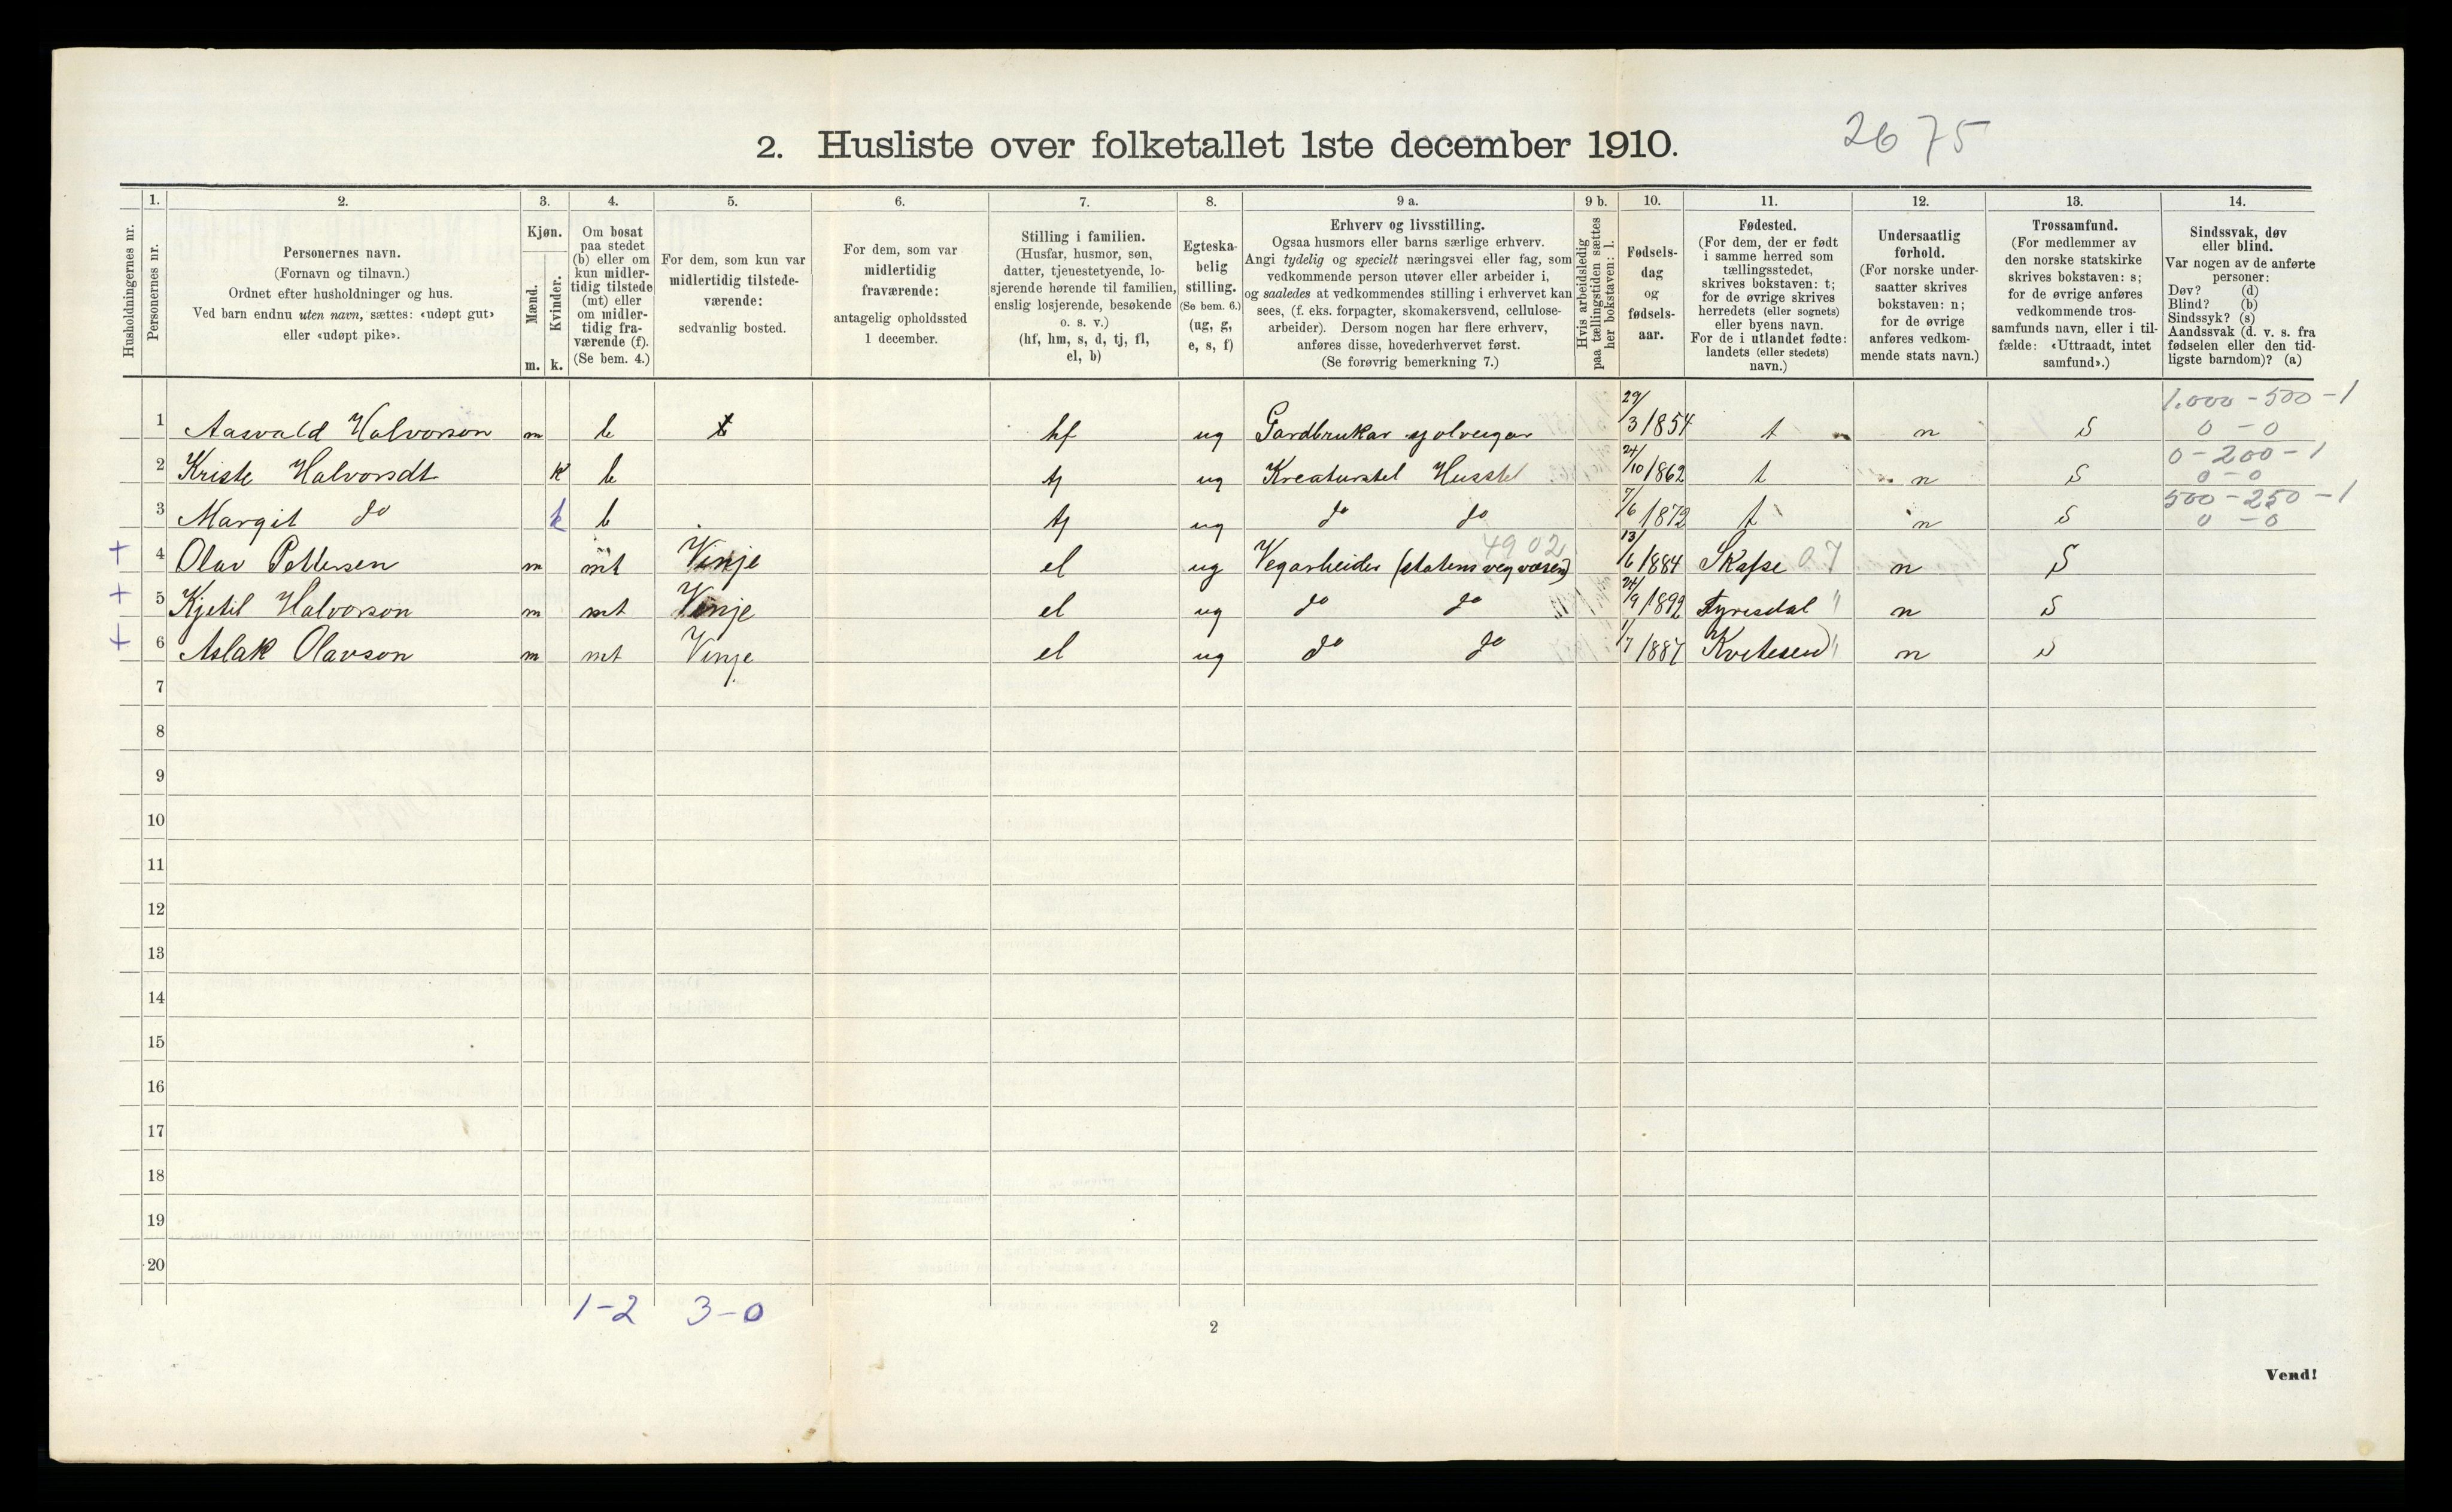 2. Husliste over folketallet 1ste december 1910.
2675
Husholdningernes nr.
1.
Personernes nr.
2.
Personernes navn.
(Fornavn og tilnavn.)
Ordnet efter husholdninger og hus.
Ved barn endnu uten navn, sættes: «udøpt gut»
eller «udøpt pike».
3.
Kjøn.
Mænd.
Kvinder.
m. k.
4.
Om bosat
paa stedet
(b) eller om
kun midler-
tidig tilstede
(mt) eller
om midler-
tidig fra-
værende (f).
(Se bem. 4.)
5.
For dem, som kun var
midlertidig tilstede-
værende:
sedvanlig bosted.
6.
For dem, som var
midlertidig
fraværende:
antagelig opholdssted
1 december.
7.
Stilling i familien.
(Husfar, husmor, søn,
datter, tjenestetyende, lo-
sjerende hørende til familien,
enslig losjerende, besøkende
o. s. v.)
(hf, hm, s, d, tj, fl,
el, b)
8.
Egteska-
belig
stilling.
(Se bem. 6.)
(ug, g,
e, s, f)
9 a.
Erhverv og livsstilling.
Ogsaa husmors eller barns særlige erhverv.
Angi tydelig og specielt næringsvei eller fag, som
vedkommende person utøver eller arbeider i,
og saaledes at vedkommendes stilling i erhvervet kan
sees, (f. eks. forpagter, skomakersvend, cellulose-
arbeider). Dersom nogen har flere erhverv,
anføres disse, hovederhvervet først.
(Se forøvrig bemerkning 7.)
9 b.
Hvis arbeidsledig
paa tællingstiden sættes
her bokstaven: l.
10.
Fødsels-
dag
og
fødsels-
aar.
11.
Fødested.
(For dem, der er født
i samme herred som
tællingsstedet,
skrives bokstaven: t;
for de øvrige skrives
herredets (eller sognets)
eller byens navn.
For de i utlandet fødte:
landets (eller stedets)
navn.)
12.
Undersaatlig
forhold.
(For norske under-
saatter skrives
bokstaven: n;
for de øvrige
anføres vedkom-
mende stats navn.)
13.
Trossamfund.
(For medlemmer av
den norske statskirke
skrives bokstaven: s;
for de øvrige anføres
vedkommende tros-
samfunds navn, eller i til-
fælde: «Uttraadt, intet
samfund».)
14.
Sindssvak, døv
eller blind.
Var nogen av de anførte
personer:
Døv? (d)
Blind? (b)
Sindssyk? (s)
Aandssvak (d. v. s. fra
fødselen eller den tid-
ligste barndom)? (a)
1.000 - 500 - 1
1 Aasvald Halvorson m b hf ug Gardbrukar sjølveigar 29/3 1854 t n S 0 - 0
0 - 200 - 1
2 Kriste Halvorsdt k b tj ug Kreaturstel Husstel 24/10 1862 t n S 0 - 0
500 - 250 - 1
3 Margit do k b tj ug do do 7/6 1872 t n S 0 - 0
4902
+ 4 Olav Pettersen m mt Vinje el ug Vegarbeider (statens vegvæsen) 13/6 1884 Skafse 07 n S
+ 5 Kjetil Halvorson m mt Vinje el ug do do 24/9 1892 Fyresdal " n S
+ 6 Aslak Olavson m mt Vinje el ug do do 1/7 1887 Kvitesend " n S
7
8
9
10
11
12
13
14
15
16
17
18
19
20
1-2 3-0
2
Vend!